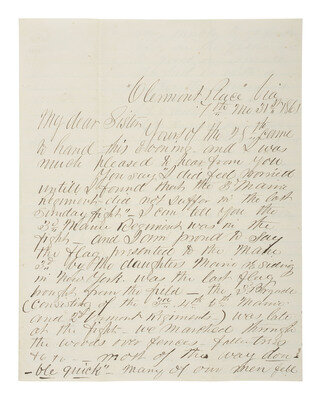 "Clermont Place" Via
7th Mo 31st 1861
My dear Sister
Yours of the 25th came
to hand this morning and I was
much pleased to hear from you
You say I did feel worried
untill I found that the 3d Maine
regiment did not suffer in the last
Sunday fight" - I can tell you the
3d Maine Regiment was in the
fight - and I am proud to say
the flag presented to the Maine
3d by the daughters Maine residing
in New York was the last flag
brought from the field - the Brigade
(consisting of the 3rd 4th 5th Maine
and 2d Vermont Regiments) was late
at the fight - we marched through
the woods over fences - fallen trees
&c &c - most of the way dou-
-ble quick" - many of our men fell